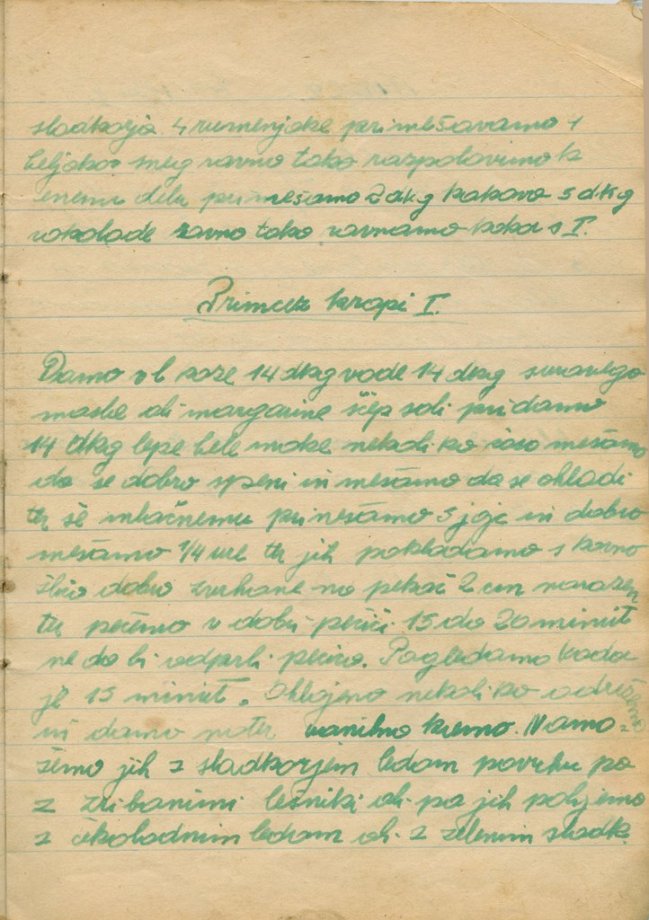 sladkorja 4 rumenjake primešavamo 1
beljakov sneg ravno tako razpolovimo k
enemu delu primešamo 2 dkg kakava 5 dkg
čokolade ravno tako ravnamo kokor s I.
Princez krapi I.
Damo v l koze 14 dkg vode 14 dkg surovega
masla ali margarine ščep soli pridamo
14 dkg lepe bele moke nekoliko časa mešamo
da se dobro speni in mešamo da se ohladi
ter še mlačnemu primešamo 5 jajc in dobro
mešamo 1/4 ure ter jih pokladamo s kavno
žlico dobro zvrhane na pekač 2 cm narazen
ter pečemo v dobri pečici 15 do 20 minut
ne da bi odprli pečico. Pogledamo kada
je 15 minut. Ohlajeno nekoliko odrežemo
in damo noter vanilno kremo. Namo-
žemo jih z sladkorjem ledam povrhu pa
z zribanimi lešniki ali pa jih polijemo
z čekoladnim ledam ali z zelenim sladk.